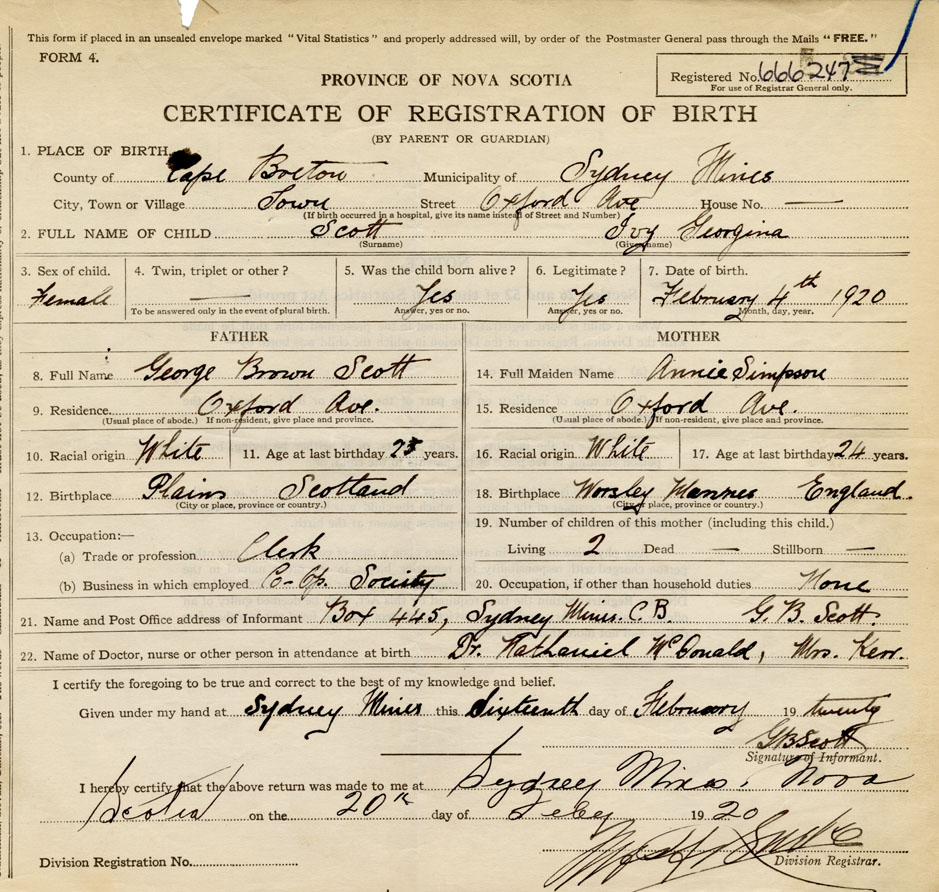 This form if placed in an unsealed envelope marked "Vital Statistics" and properly addressed will, by order of the Postmaster General pass through the Mails "FREE."
FORM 4.
Registered No. 666247
For use of Registrar General only.
PROVINCE OF NOVA SCOTIA
CERTIFICATE OF REGISTRATION OF BIRTH
(BY PARENT OR GUARDIAN)
1. PLACE OF BIRTH,
County of Cape Breton Municipality of Sydney Mines
City, Town or Village Town Street Oxford Ave House No. —
(If birth occurred in a hospital, give its name instead of Street and Number)
2. FULL NAME OF CHILD Scott Ivy Georgina
(Surname) (Given name)
3. Sex of child. 4. Twin, triplet or other? 5. Was the child born alive? 6. Legitimate? 7. Date of birth.
Female — Yes Yes February 4th 1920
To be answered only in the event of plural birth. Answer, yes or no. Answer, yes or no. Month, day, year.
FATHER MOTHER
8. Full Name George Brown Scott 14. Full Maiden Name Annie Simpson
9. Residence. Oxford Ave. 15. Residence Oxford Ave.
(Usual place of abode.) If non-resident, give place and province. (Usual place of abode.) If non-resident, give place and province.
10. Racial origin White 11. Age at last birthday years. 16. Racial origin White 17. Age at last birthday 24 years.
12. Birthplace Plains Scotland 18. Birthplace Worsley England.
(City or place, province or country.) (City or place, province or country.)
13. Occupation:— 19. Number of children of this mother (including this child.)
(a) Trade or profession Clerk Living 2 Dead — Stillborn —
(b) Business in which employed Co-Op. Society 20. Occupation, if other than household duties None
21. Name and Post Office address of Informant Box 445, Sydney Mines. C.B. G. B. Scott.
22. Name of Doctor, nurse or other person in attendance at birth Dr. Nathaniel McDonald, Mrs. Kerr.
I certify the foregoing to be true and correct to the best of my knowledge and belief.
Given under my hand at Sydney Mines this sixteenth day of February 19 twenty
GBScott
Signature of Informant.
I hereby certify that the above return was made to me at Sydney Mines, Nova
Scotia on the 20th day of Feby 1920
Division Registration No. Division Registrar.